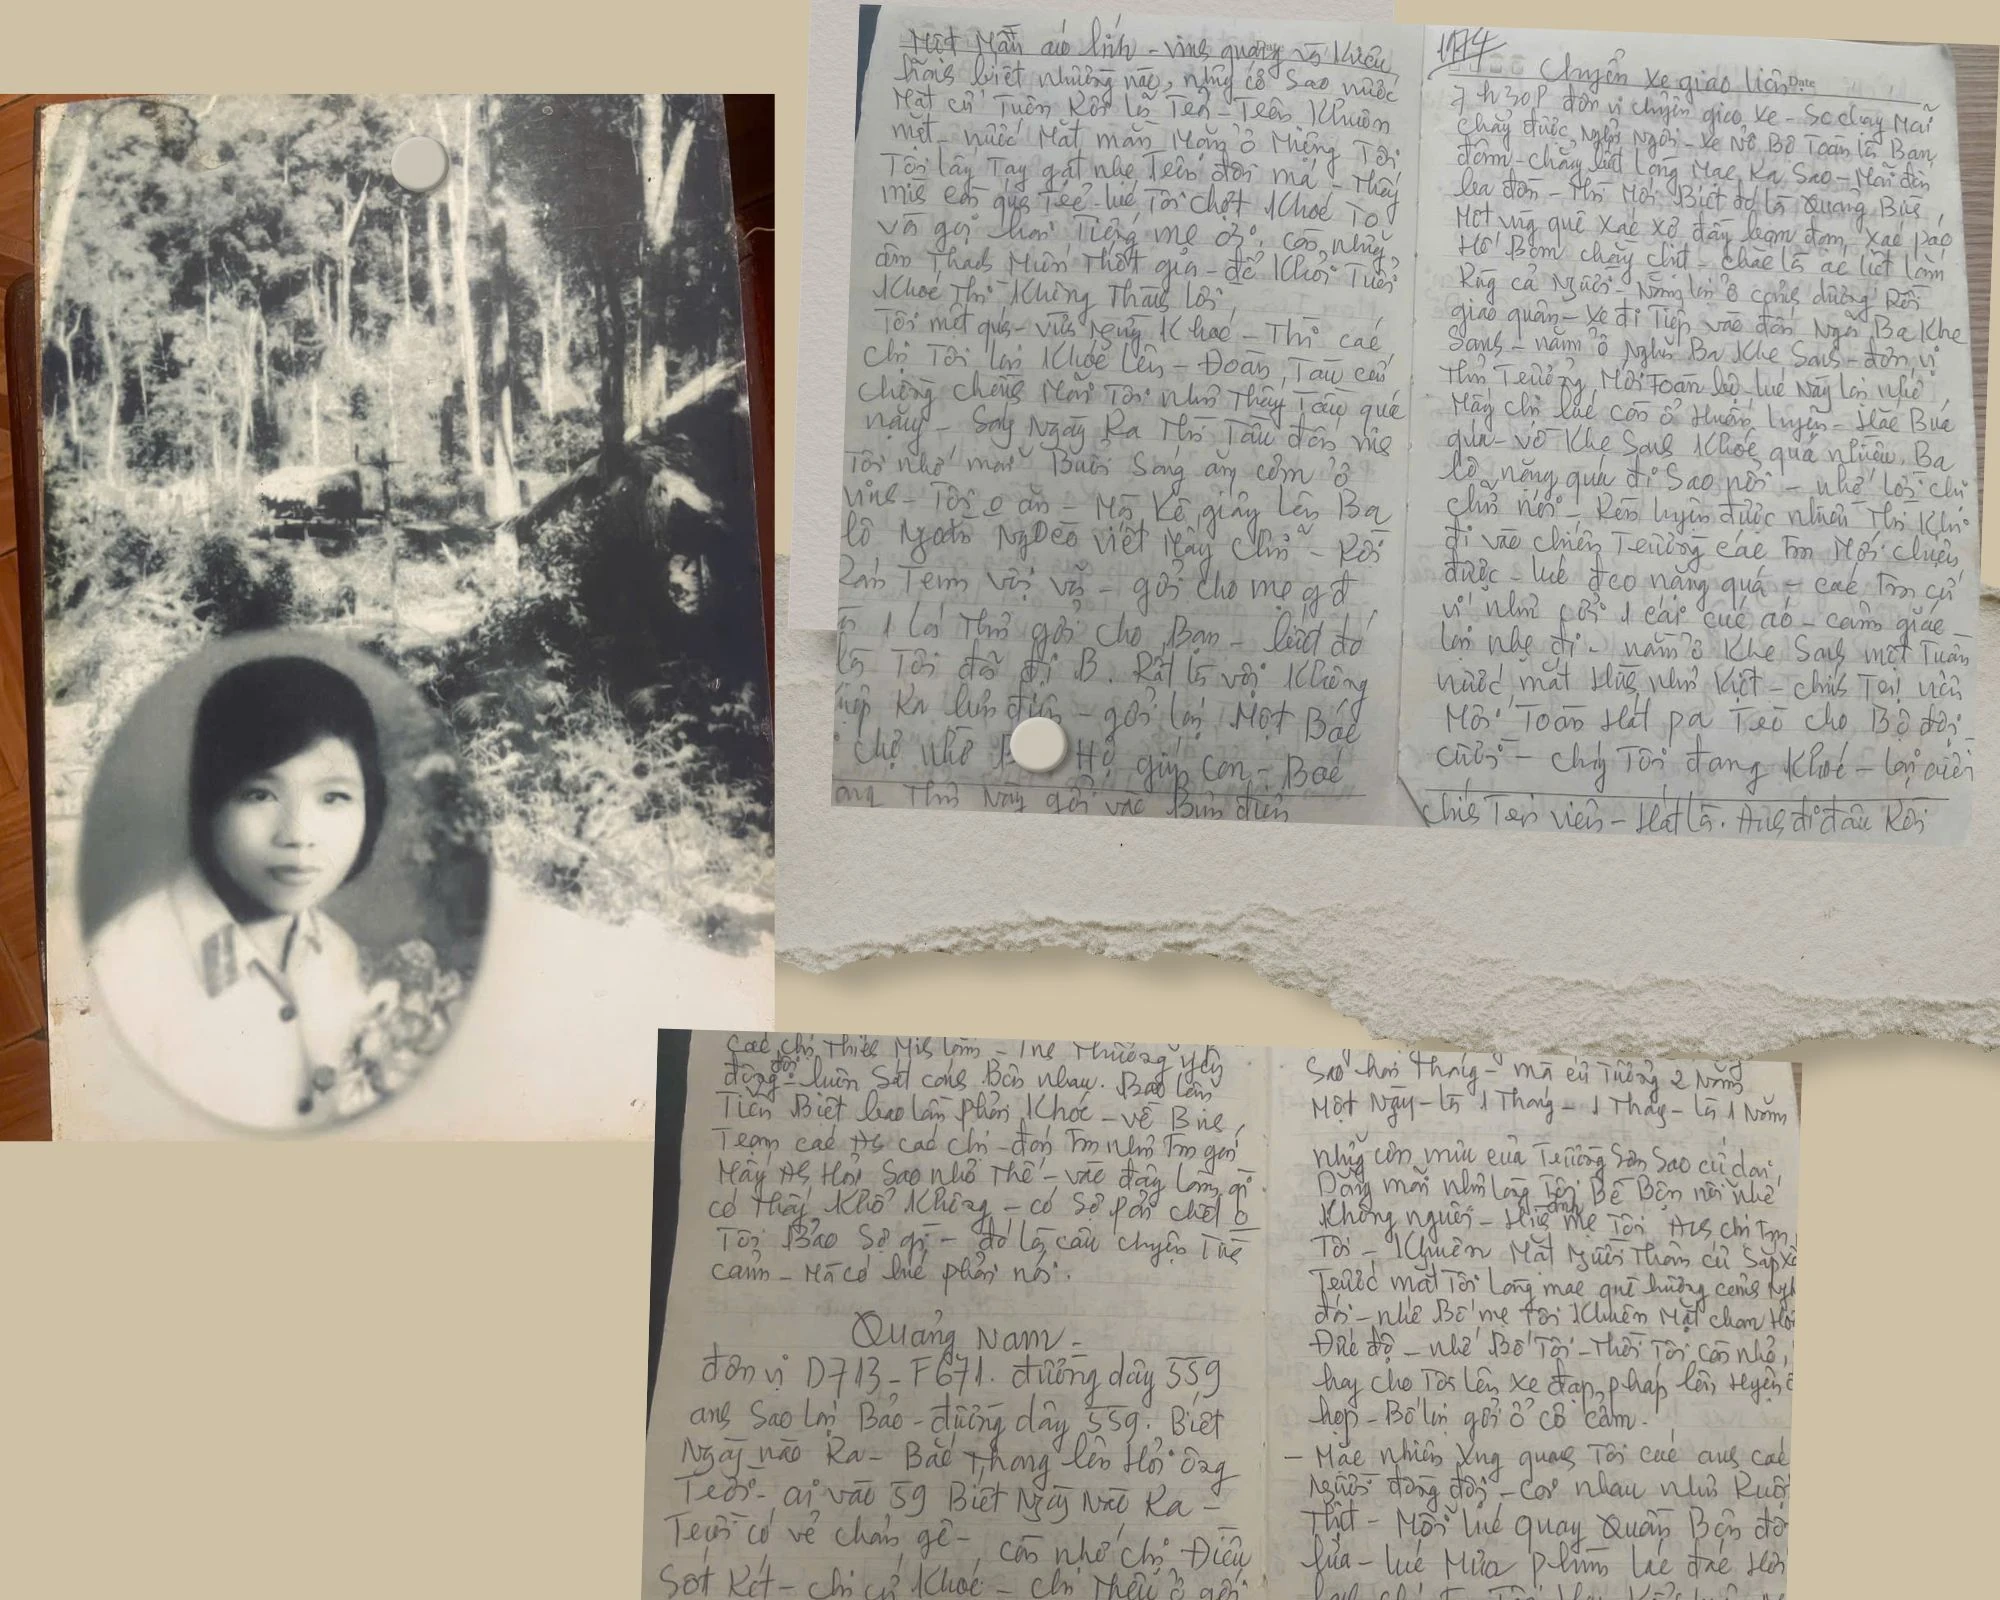 Một Màu áo lính - vinh quang và kiêu
hãnh biết nhường nào, nhưng cớ Sao nước
Mắt cứ Tuôn Rơi là Trên - Trên Khuôn
mặt - nước Mắt mằn Mặn ở Miệng Tôi
Tôi lấy Tay gạt nhẹ Trên đôi má - Thấy
mình còn quá Trẻ - lúc Tôi chợt Khóc To
và gọi hai Tiếng mẹ ơi, còn những
âm Thanh Miền Thốt giá - để Khỏi Tuổi
Khóc Thì Không Thành lời,
Tôi mệt quá - vừa ngừng Khóc - Thì các
chị Tôi lại Khóc lên - Đoàn Tàu cứ
chòng chềnh Mãi Tôi nhớ Thấy Tàu quá
nặng - Sáng Ngày Ra Thì Tàu đến vinh
Tôi nhớ mãi Buổi Sáng ăn cơm ở
vinh - Tôi o ăn - Mà Kê giấy lên Ba
lô Ngoằn Nghoèo viết Mấy chữ - Rồi
Dán Tem vội vã - gởi cho mẹ gđ
1 lá Thư gởi cho Bạn - lướt đó
là Tôi đã đi B. Rất là vội Không
Kịp Ra bưu điện - gởi lại Một Bác
chợ nhờ Bác Hộ giúp con - Bác
Thư Này gởi vào Bưu điện
1974
Chuyến Xe giao liên
Date
7h30P đơn vị chuyển giao Xe - Sc chạy Mãi
chẳng được Nghỉ Ngơi - Xe Nổ Bộ Toàn là Ban
đêm - chẳng biết lòng Mạc Ra Sao - Mãi đến
lúc đến - Thì Mới Biết đó là Quảng Bình,
Một vùng quê Xác Xơ đầy bom đạn, Xác pháo
Hố Bom chằng chịt - chắc là ác liệt lắm
Rụng cả Người - Nằm lại ở cạnh đường Rồi
giao quân - Xe đi Tiếp vào đến Ngã Ba Khe
Sanh - nằm ở Nghĩa Ba Khe Sanh - đơn vị
Thủ Trưởng Mới Toàn bộ lúc Này lại nhớ
Mấy chị lúc còn ở Huấn luyện - Hắc Búa
quá - vô Khe Sanh Khóc quá nhiều, Ba
lô nặng quá đi Sao nổi - nhớ lời chú
chín nói - Rèn luyện được nhiều Thì Khi
đi vào chiến Trường các Em Mới chiụ
được - lúc đeo nặng quá - các Em cứ
ví như cởi 1 cái cúc áo - cảm giác
lại nhẹ đi - nằm ở Khe Sanh một Tuần
nước mắt Hình như Kiệt - chính Trị viên
Mới Toàn Hát pa Trò cho Bộ đội
cười - chúng Tôi đang Khóc - lại cười
chính Trị viên - Hát là. Anh đi đâu Rồi
các chị Thiếu Mình lắm - Tình Thương yêu
đồng đội - luôn Sát cánh Bên nhau. Bao lần
Tiễn Biệt bao lần phải Khóc - về Binh
Trạm các As các chị - đón Em như Em gái
Mấy As Hỏi Sao nhỏ Thế - vào đây làm gì
có Thấy Khổ Không - có Sợ phải chết o
Tôi Bảo Sợ gì - đó là câu chuyện Tình
cảm - Mà có lúc phải nói.
Quảng Nam -
đơn vị D713 - F671. đường dây 559
anh Sao lại Bảo - đường dây 559. Biết
Ngày nào Ra - Bắc Thang lên Hỏi ông
Trời - ai vào 59 Biết Ngày Nào Ra -
Trời có vẻ chán ghê - còn nhớ chị Điều
Sốt Rét - chị cứ Khóc - chị Thều ở gởi
Sao hai Tháng - mà cứ Tưởng 2 Năm
Một Ngày - là 1 Tháng - 1 Tháng - là 1 Năm
những cơn mưa của Trường Sơn Sao cứ dai
Dẳng mãi như lòng Tôi Bề Bộn nỗi nhớ
Không nguôi - Hình ảnh mẹ Tôi Anh chị Em
Tôi - Khuôn Mặt Người Thân cứ Sắp Xế
Trước mắt Tôi lòng mạc quê hương cảnh Ngh
đói - nhớ Bố mẹ Tôi Khuôn Mặt chan Hò
Đức độ - nhớ Bố Tôi - Thời Tôi còn nhỏ,
hay cho Tôi lên xe đạp pháp lên Huyện
họp - Bố lại gởi ở cô cẩm.
- Mặc nhiên Xng quanh Tôi các anh các
Người đồng đội - coi nhau như Ruột
Thịt - Mỗi lúc quay Quần Bên đố
lửa - lúc Mưa phùn lác đác Hơi